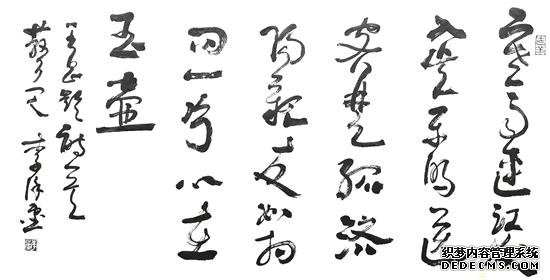 寒雨連江夜
入吴平明送
客楚山孤洛
陽親友如相
问一片冰心在
玉壶
王昌龄诗一首
织梦内容管理系统
DEDECMS.COM